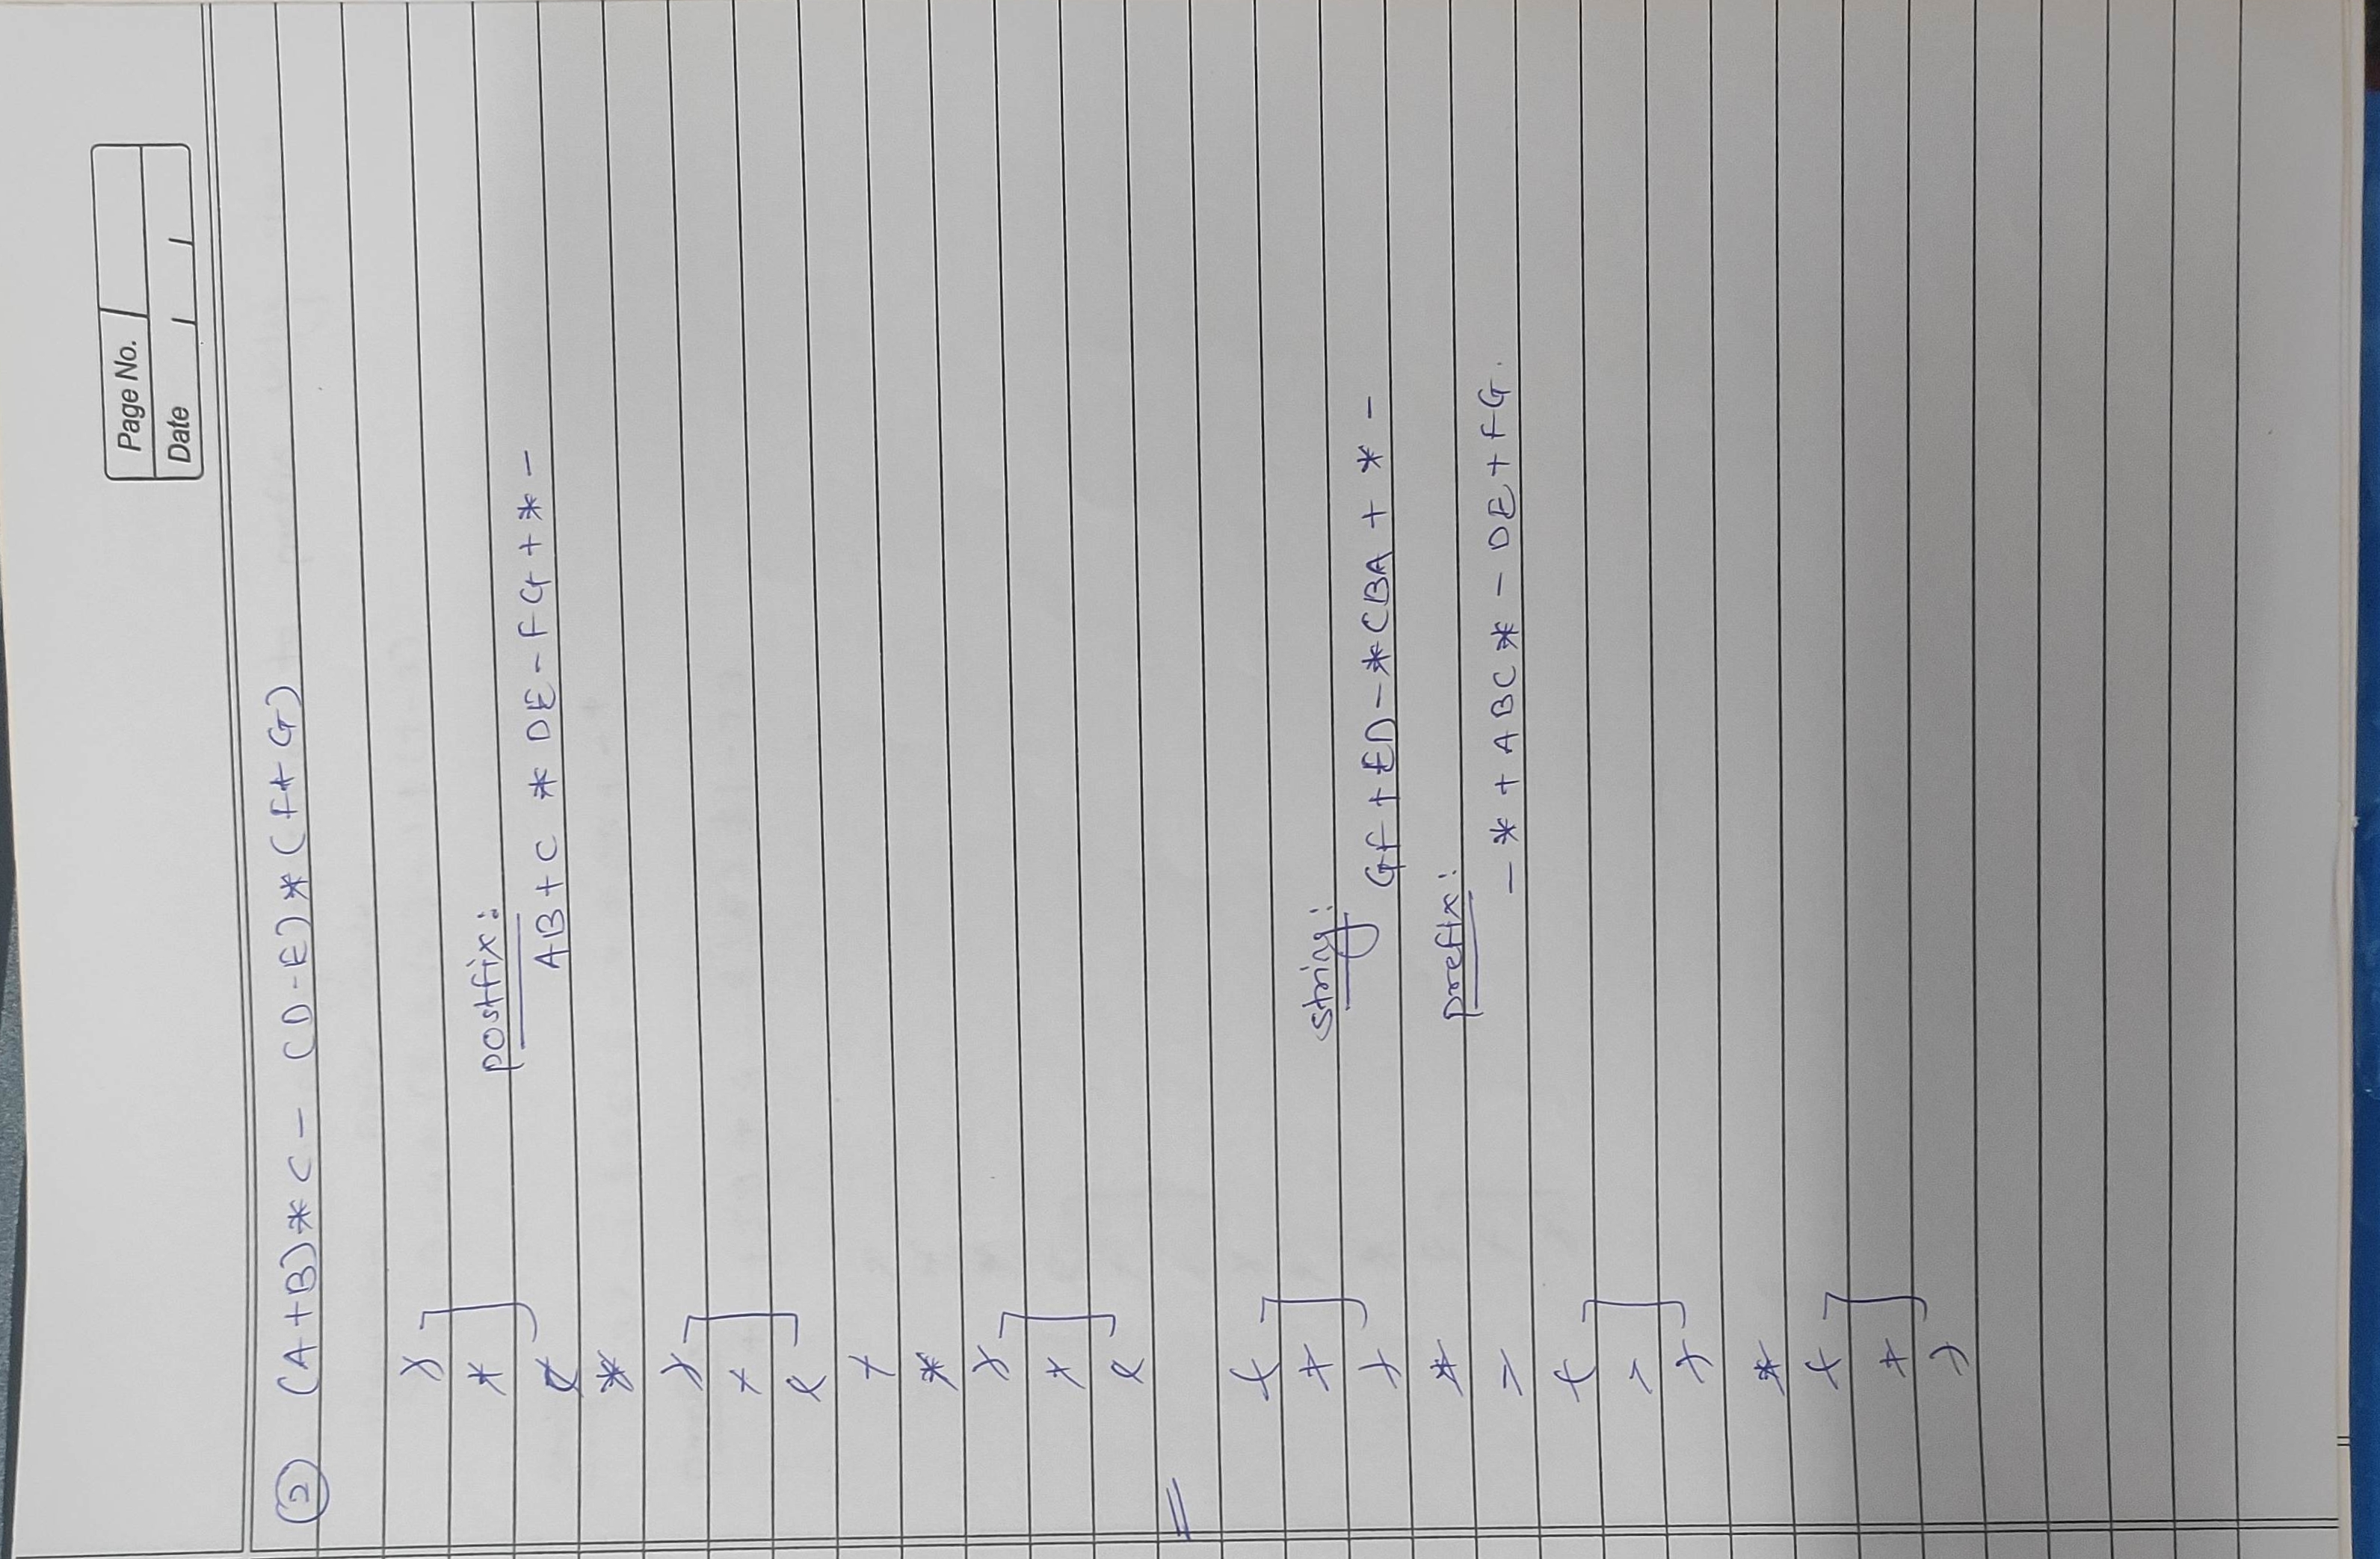 Page No.
Date / /
② (A+B)*C - (D-E)*(F+G)
)
*
(
postfix:
AB+C * DE-FG+*-
*
)
+
(
+
*
)
+
(
(
+
)
string:
GF+ED-*CBA+*-
*
prefix:
-*+ABC*-DE+FG.
-
(
-
)
*
(
+
)